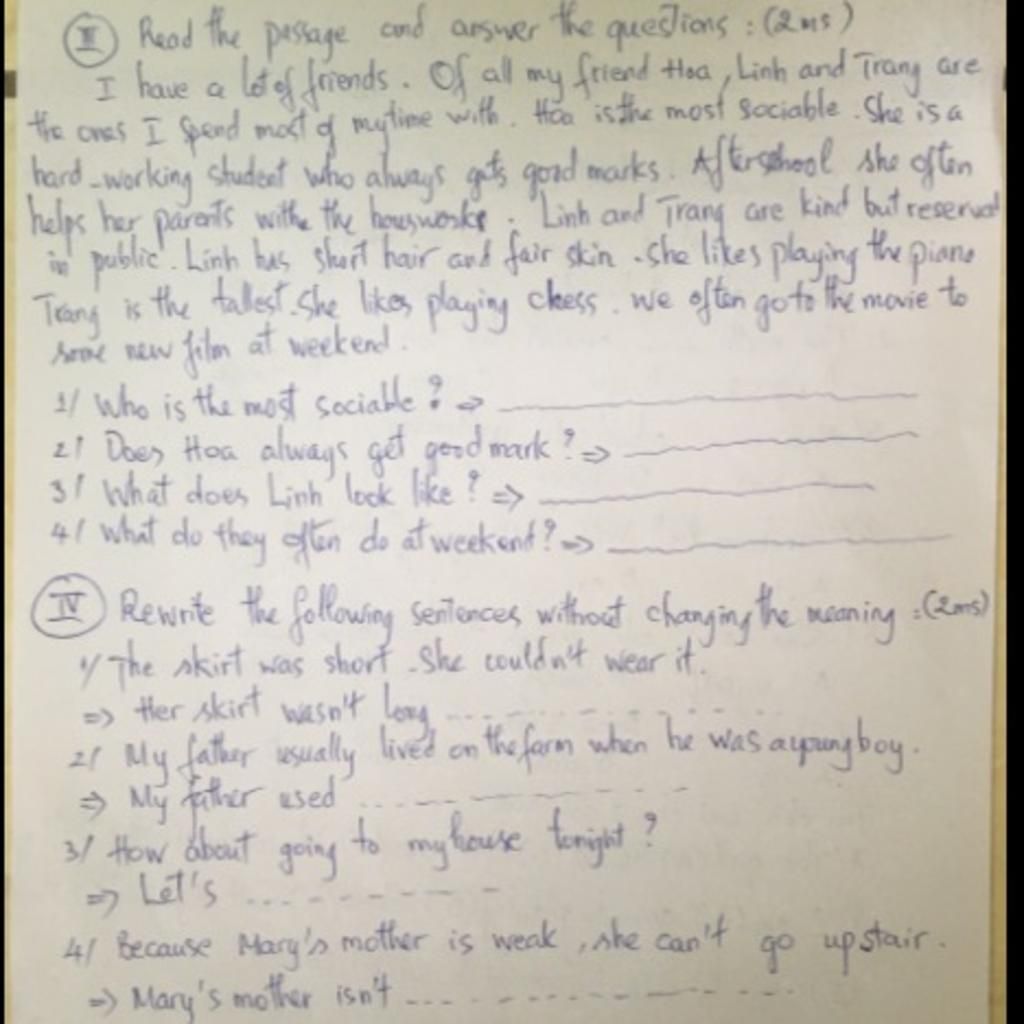 III Read the passage and answer the questions : (2ms)
I have a lot of friends. Of all my friend Hoa, Linh and Trang are
the ones I spend most of my time with. Hoa is the most sociable. She is a
hard-working student who always gets good marks. After school she often
helps her parents with the housworks. Linh and Trang are kind but reserved
in public. Linh has short hair and fair skin. She likes playing the piano
Trang is the tallest. She likes playing chess. we often go to the movie to
some new film at weekend.
1/ Who is the most sociable? =>
2/ Does Hoa always get good mark? =>
3/ What does Linh look like? =>
4/ What do they often do at weekend? =>
IV Rewrite the following sentences without changing the meaning : (2ms)
1/ The skirt was short. She couldn't wear it.
=> Her skirt wasn't long ............
2/ My father usually lived on the farm when he was a young boy.
=> My father used ............
3/ How about going to my house tonight?
=> Let's ............
4/ Because Mary's mother is weak, she can't go upstair.
=> Mary's mother isn't ............